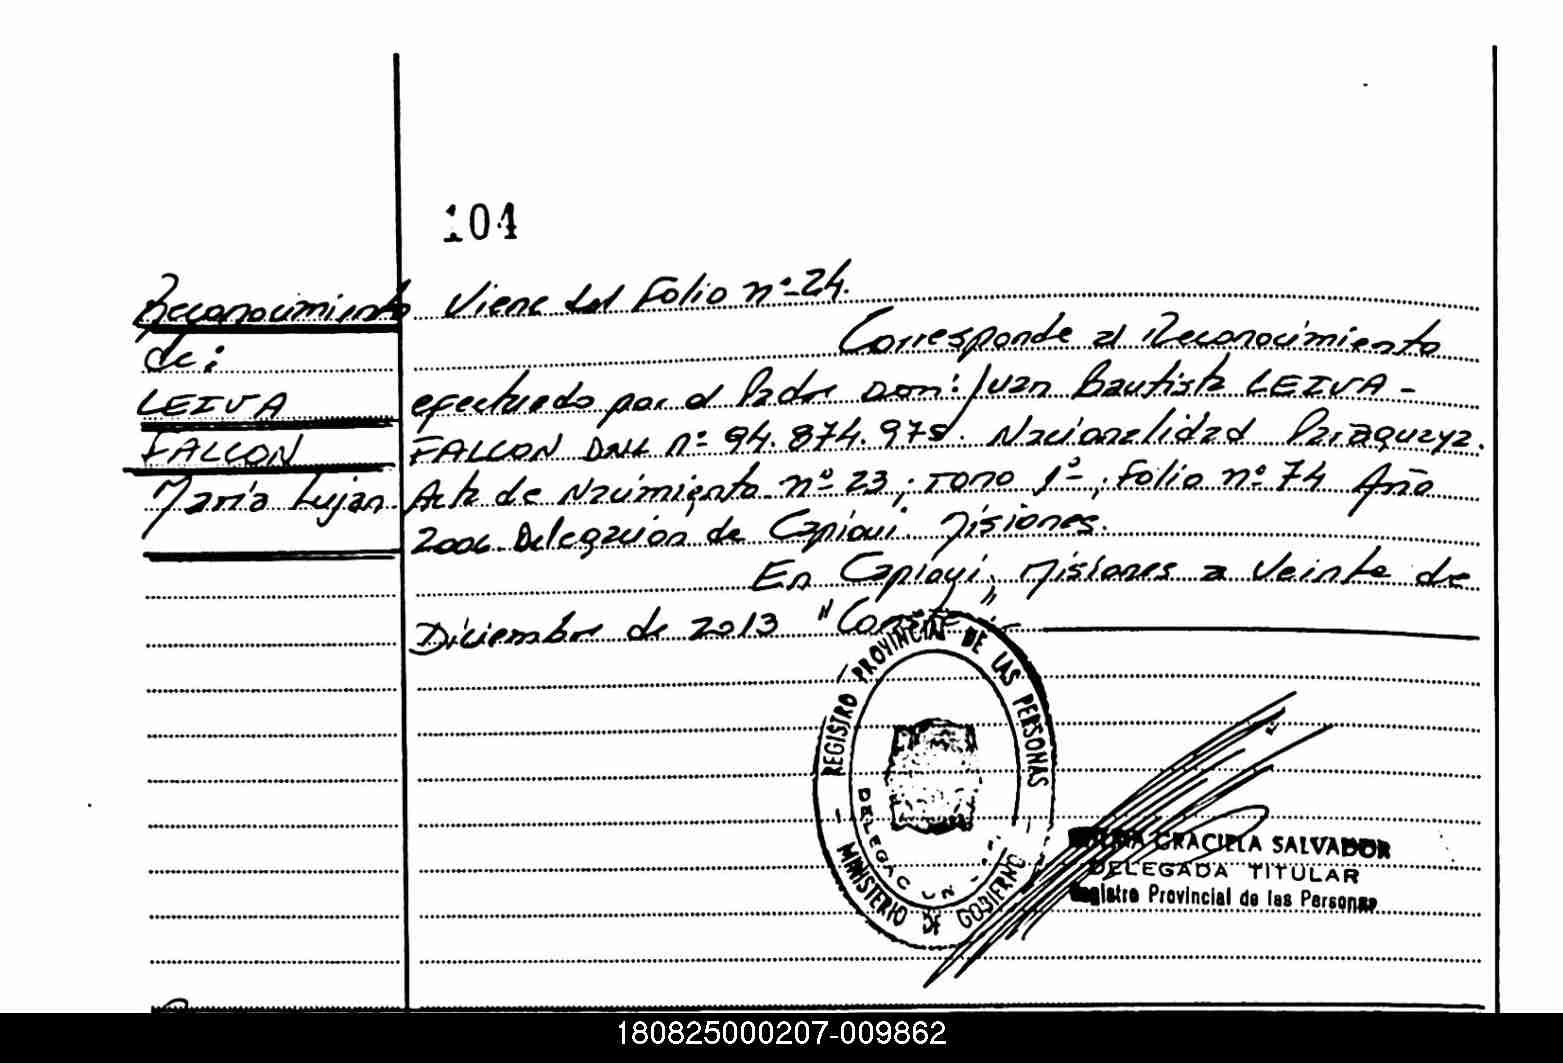 104
Reconocimiento
de:
LEIVA
FALCON
María Luján
Viene del Folio nº 24.
Corresponde al Reconocimiento
efectuado por el Padre Don: Juan Bautista LEIVA-
FALCON DNI nº 94.874.975. Nacionalidad Paraguaya.
Acta de Nacimiento nº 23; Tomo 1º; Folio nº 74 Año
2006. Delegación de Capioví. Misiones.
En Capioví, Misiones a Veinte de
Diciembre de 2013 "Conste"
REGISTRO PROVINCIAL DE LAS PERSONAS
MINISTERIO DE GOBIERNO
GRACIELA SALVADOR
DELEGADA TITULAR
Registro Provincial de las Personas
180825000207-009862